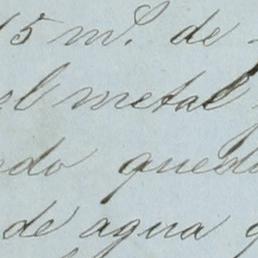 15 m.s de
el metal
edo qued
de agua q